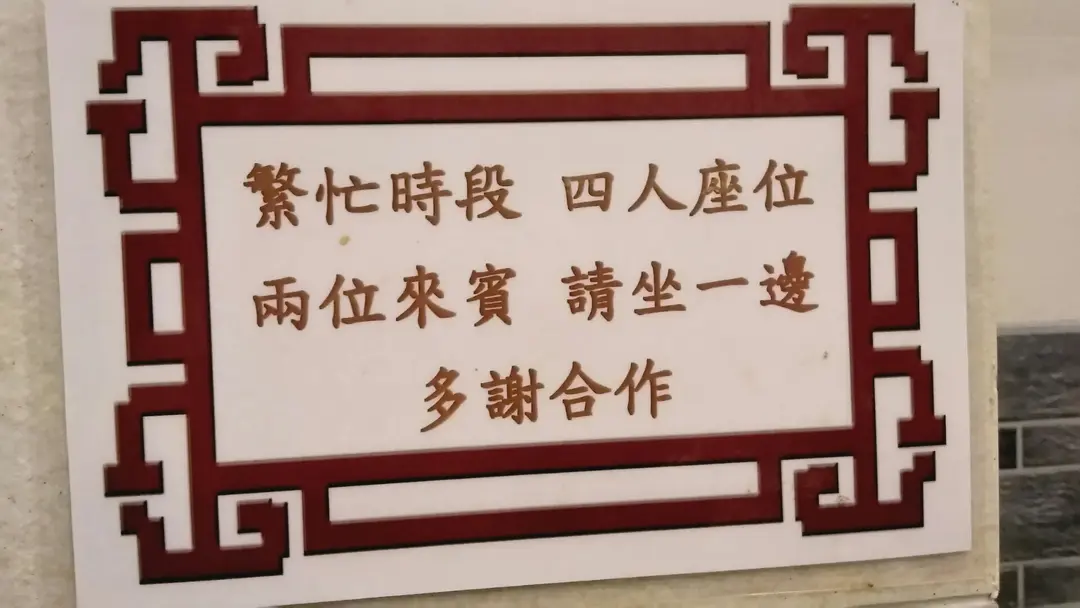 繁忙時段 四人座位
兩位來賓 請坐一邊
多謝合作